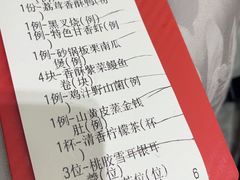 1份-荔茸香酥鸭(例)
1例-黑叉烧(例)
1例-特色甘香虾(例)
1例-砂锅板栗南瓜
煲(例)
4块-香酥紫菜鳗鱼
卷(块)
1例-鸡汁野山菌(例)
1例-山黄皮蒸金钱
肚(例)
1杯-清香柠檬茶(杯)
3位-桃胶雪耳银耳
(位)
6